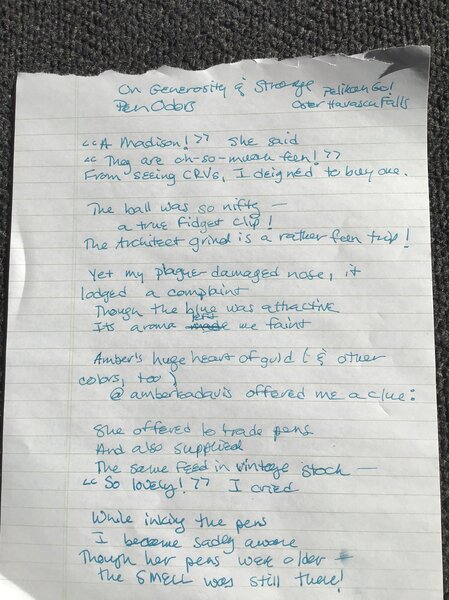 On Generosity & Strange Pelikan Go!
Pen Odors Oster Havasu Falls
"A Madison!" she said
"They are oh-so-much fun!"
From seeing CRVs, I deigned to buy one.
The ball was so nifty —
a true fidget clip!
The Architect grind is a rather fun trip!
Yet my plague damaged nose, it
lodged a complaint
Though the blue was attractive
Its aroma left me faint
Amber's huge heart of gold (& other
colors, too)
@amberleadavis offered me a clue:
She offered to trade pens
And also supplied
The same feed in vintage stock —
"So lovely!" I cried
While inking the pens
I became sadly aware
Though her pens were older —
the SMELL was still there!